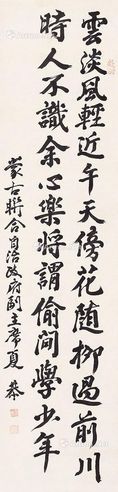 雲淡風輕近午天傍花随柳過前川
時人不識余心樂將謂偷閒學少年
蒙古聯合自治政府副主席夏恭